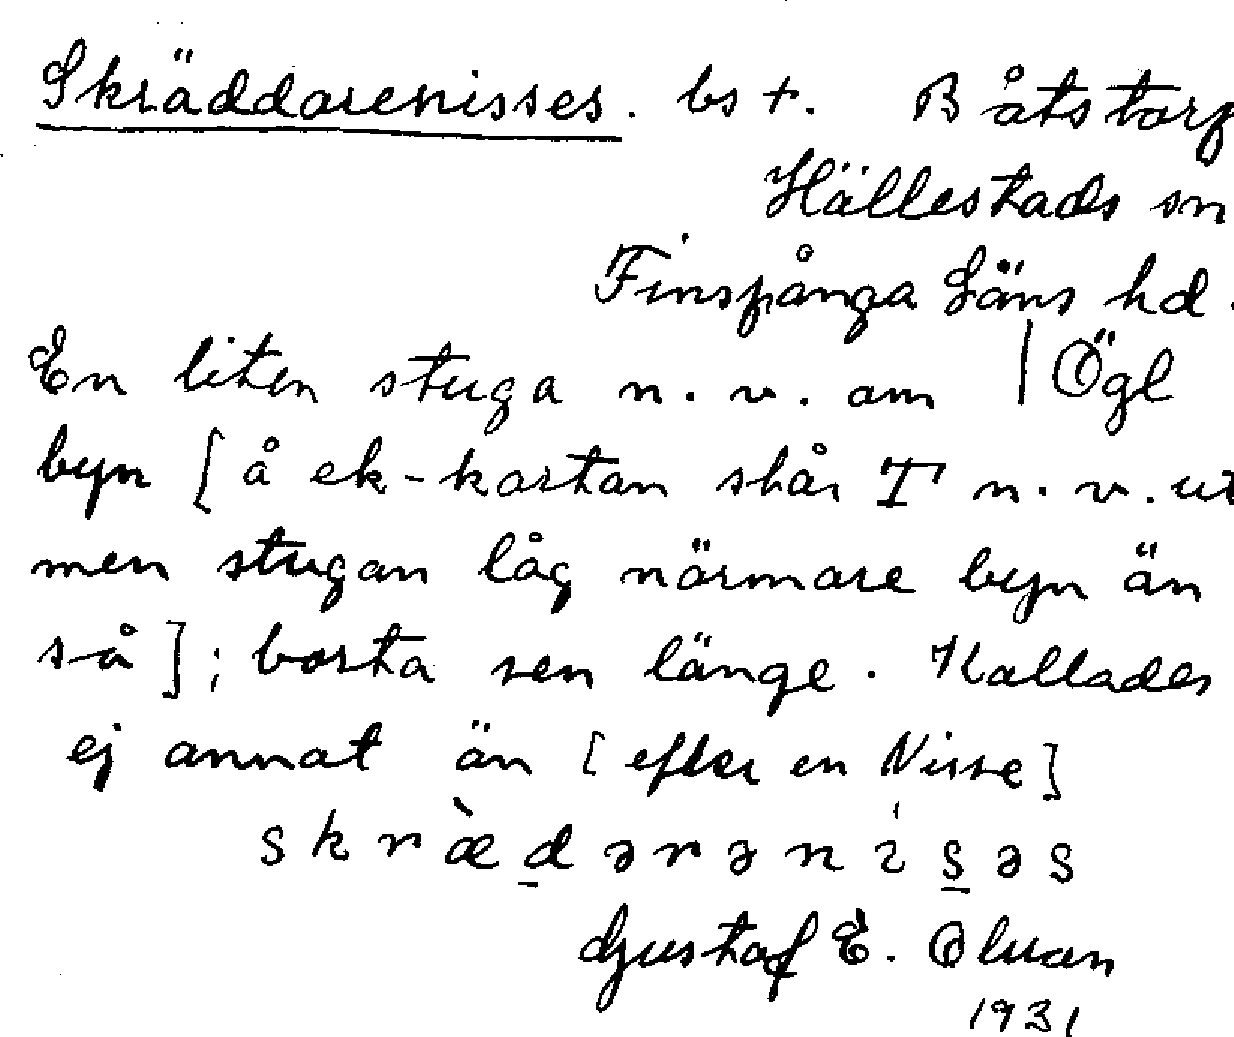 Skräddarenisses. bs +. Båtstorp
Hällestads sn
Finspånga Läns hd.
En liten stuga n. v. om | Ögl
byn [å ek-kartan står T n. v. ut
men stugan låg närmare byn än
så]; borta sen länge. Kallades
ej annat än [efter en Nisse]
skræ̀d̲ərəni̍s̲əs
Gustaf E. Olsson
1931